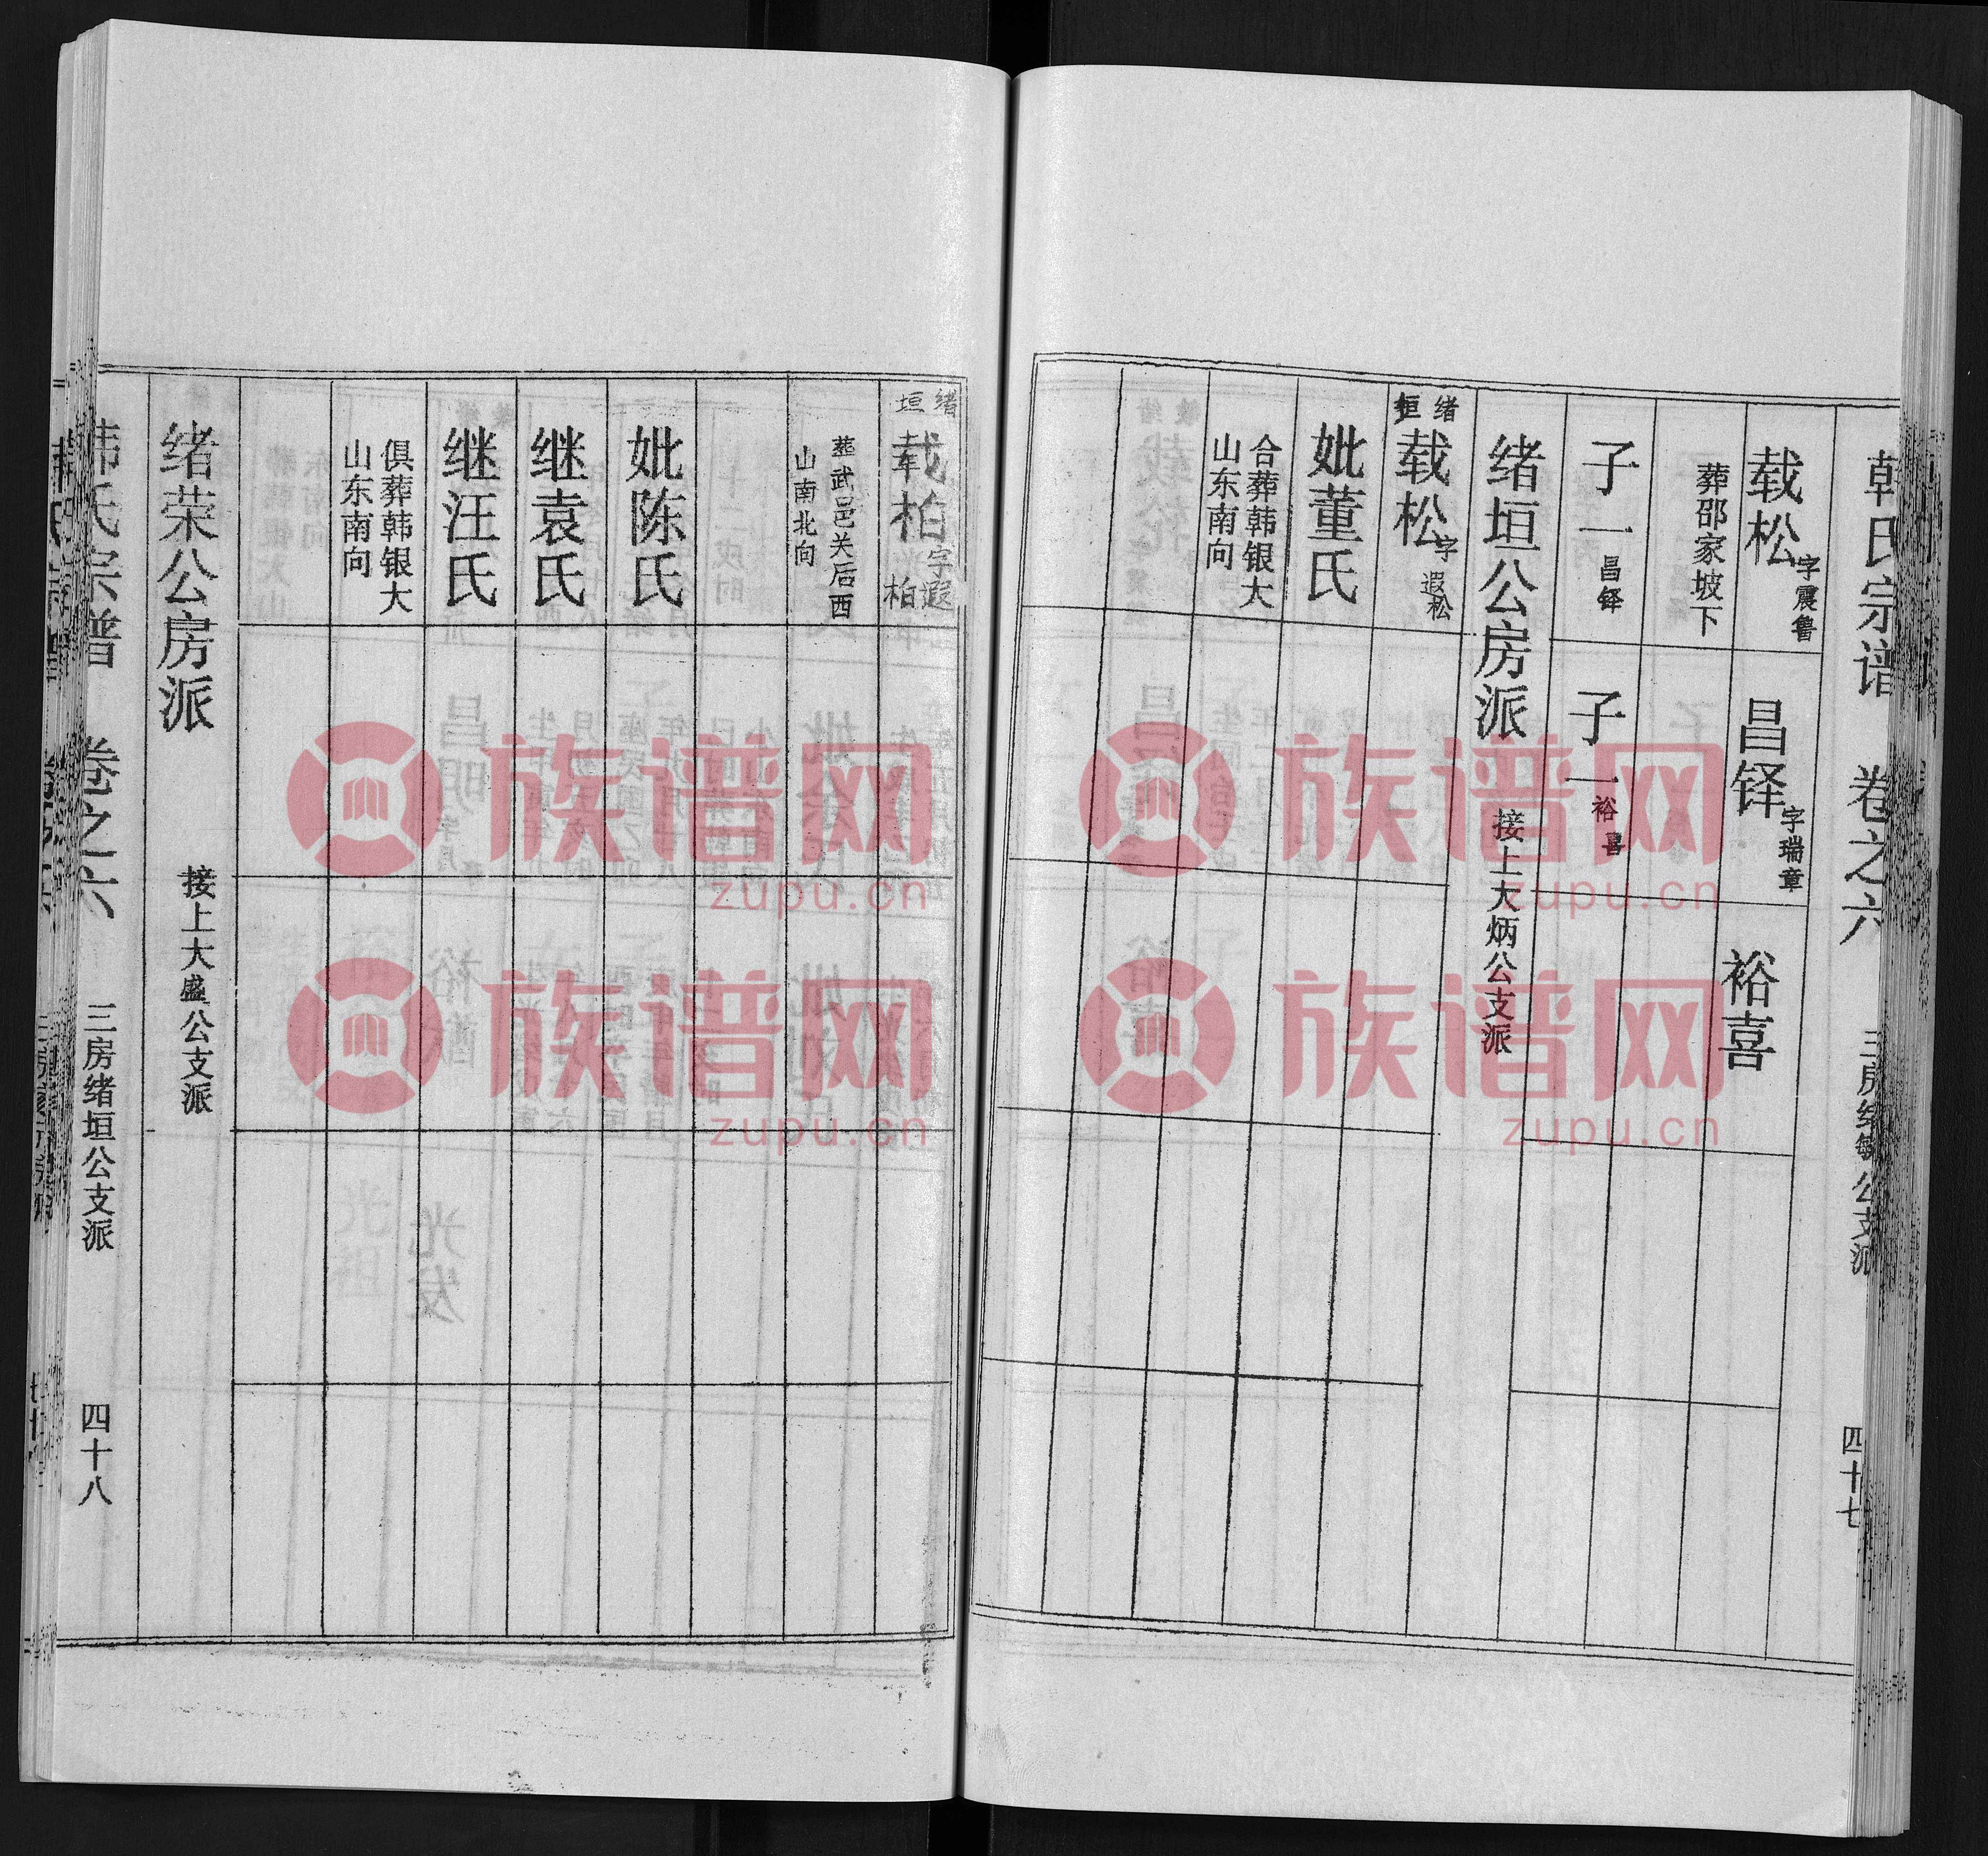 韩氏宗谱 卷之六 三房绪敏公支派 四十七
载松 字震鲁
葬邵家坡下
子一 昌铎
昌铎 字瑞章
子一 裕喜
裕喜
绪垣公房派 接上大炳公支派
绪垣
载松 字遐松
妣董氏
合葬韩银大
山东南向
韩氏宗谱 卷之六 三房绪垣公支派 四十八
绪垣
载柏 字遐柏
葬武邑关后西
山南北向
妣陈氏
继袁氏
继汪氏
俱葬韩银大
山东南向
绪荣公房派 接上大盛公支派
族谱网
zupu.cn
族谱网
zupu.cn
族谱网
zupu.cn
族谱网
zupu.cn